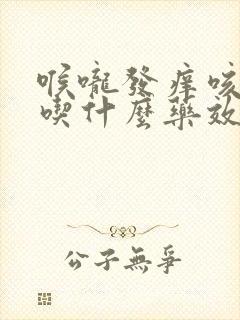 喉嚨發痒咳
喫什麼藥效
公子無爭